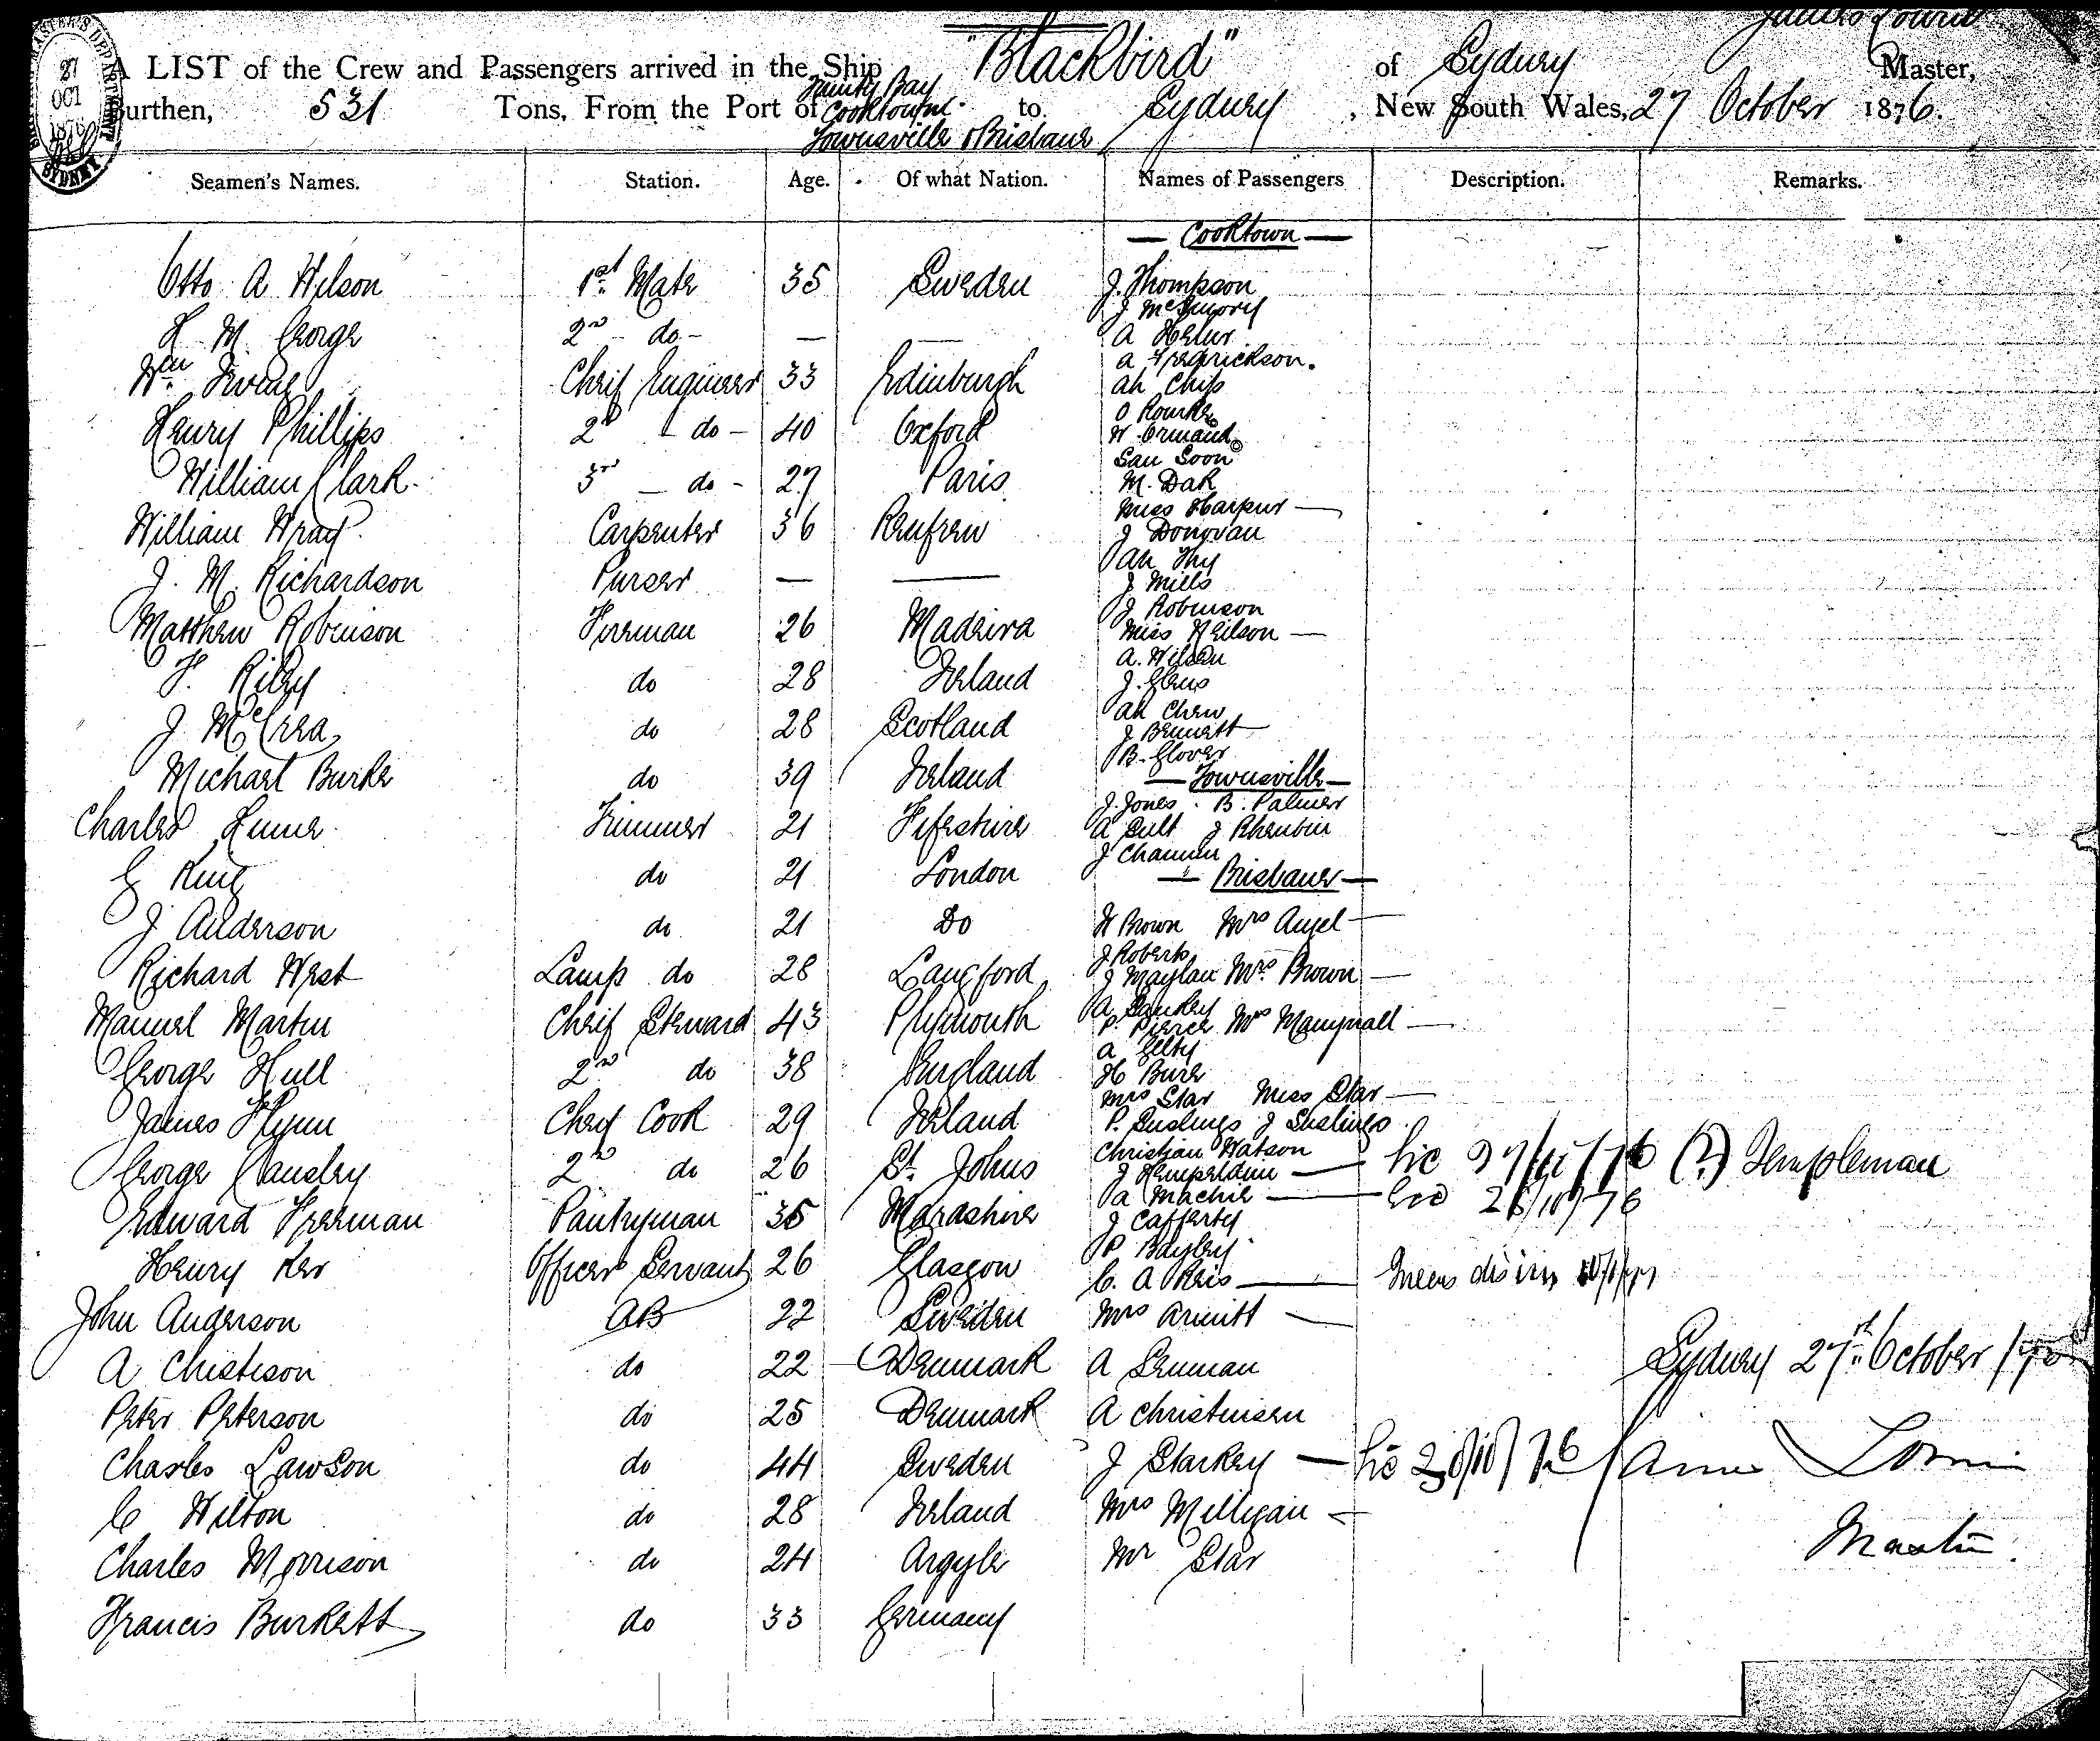 James Lowrie
A LIST of the Crew and Passengers arrived in the Ship "Blackbird" of Sydney Master,
Trinity Bay
Burthen, 531 Tons, From the Port of Cooktown to Sydney, New South Wales, 27 October 1876.
Townsville & Brisbane
27
OCT
1876
SYDNEY
Seamen's Names. Station. Age. Of what Nation. Names of Passengers Description. Remarks.
— Cooktown —
Otto A Wilson 1st Mate 35 Sweden J. Thompson
H M. George 2nd - do - —
A
a Fredrickson.
Wm Irving Chief Engineer 33 Edinburgh ah Chip
O Rourke
Henry Phillips 2nd - do - 40 Oxford W Ormand
San Soon
William Clark 3rd - do - 27 Paris M. Dak
Miss Harpur —
William Wray Carpenter 36 Renfrew J Donovan
ah Thy
J. M. Richardson Purser — — J Mills
J Robinson
Matthew Robinson Fireman 26 Madeira Miss Neilson —
A. Wilson
F. Riley do 28 Ireland J.
ah Chew
J McCrea do 28 Scotland J Bennett —
B. Glover
Michael Burke do 39 Ireland — Townsville —
J. Jones B. Palmer
Charles Hume Trimmer 21 Fifeshire A Sult J
J
G King do 21 London — Brisbane —
J Anderson do 21 Do H Brown Mrs Angel —
J Roberts
Richard West Lamp do 28 Langford J Maylan Mrs Brown —
A Sankey
Manuel Martin Chief Steward 43 Plymouth P. Pierce Mrs —
a
George Hull 2nd do 38 England H
Mrs Star Miss Star —
James Flynn Chief Cook 29 Ireland P. J
Christian Watson
George 2nd do 26 St. Johns J — (?) Templeman
a Machie —
Edward Freeman Pantryman 35 J Cafferty
P Bayley
Henry Ker Officers Servant 26 Glasgow C. A Reis —
John Anderson AB 22 Sweden Mrs —
Sydney 27th October
A Chistison do 22 Denmark A
Peter Peterson do 25 Denmark A Christinsen
Charles Lawson do 44 Sweden J Starkey — James Lowrie
C Wilton do 28 Ireland Mrs Milligan —
Master.
Charles Morrison do 24 Argyle Mr Star
Francis Burkett do 33 Germany